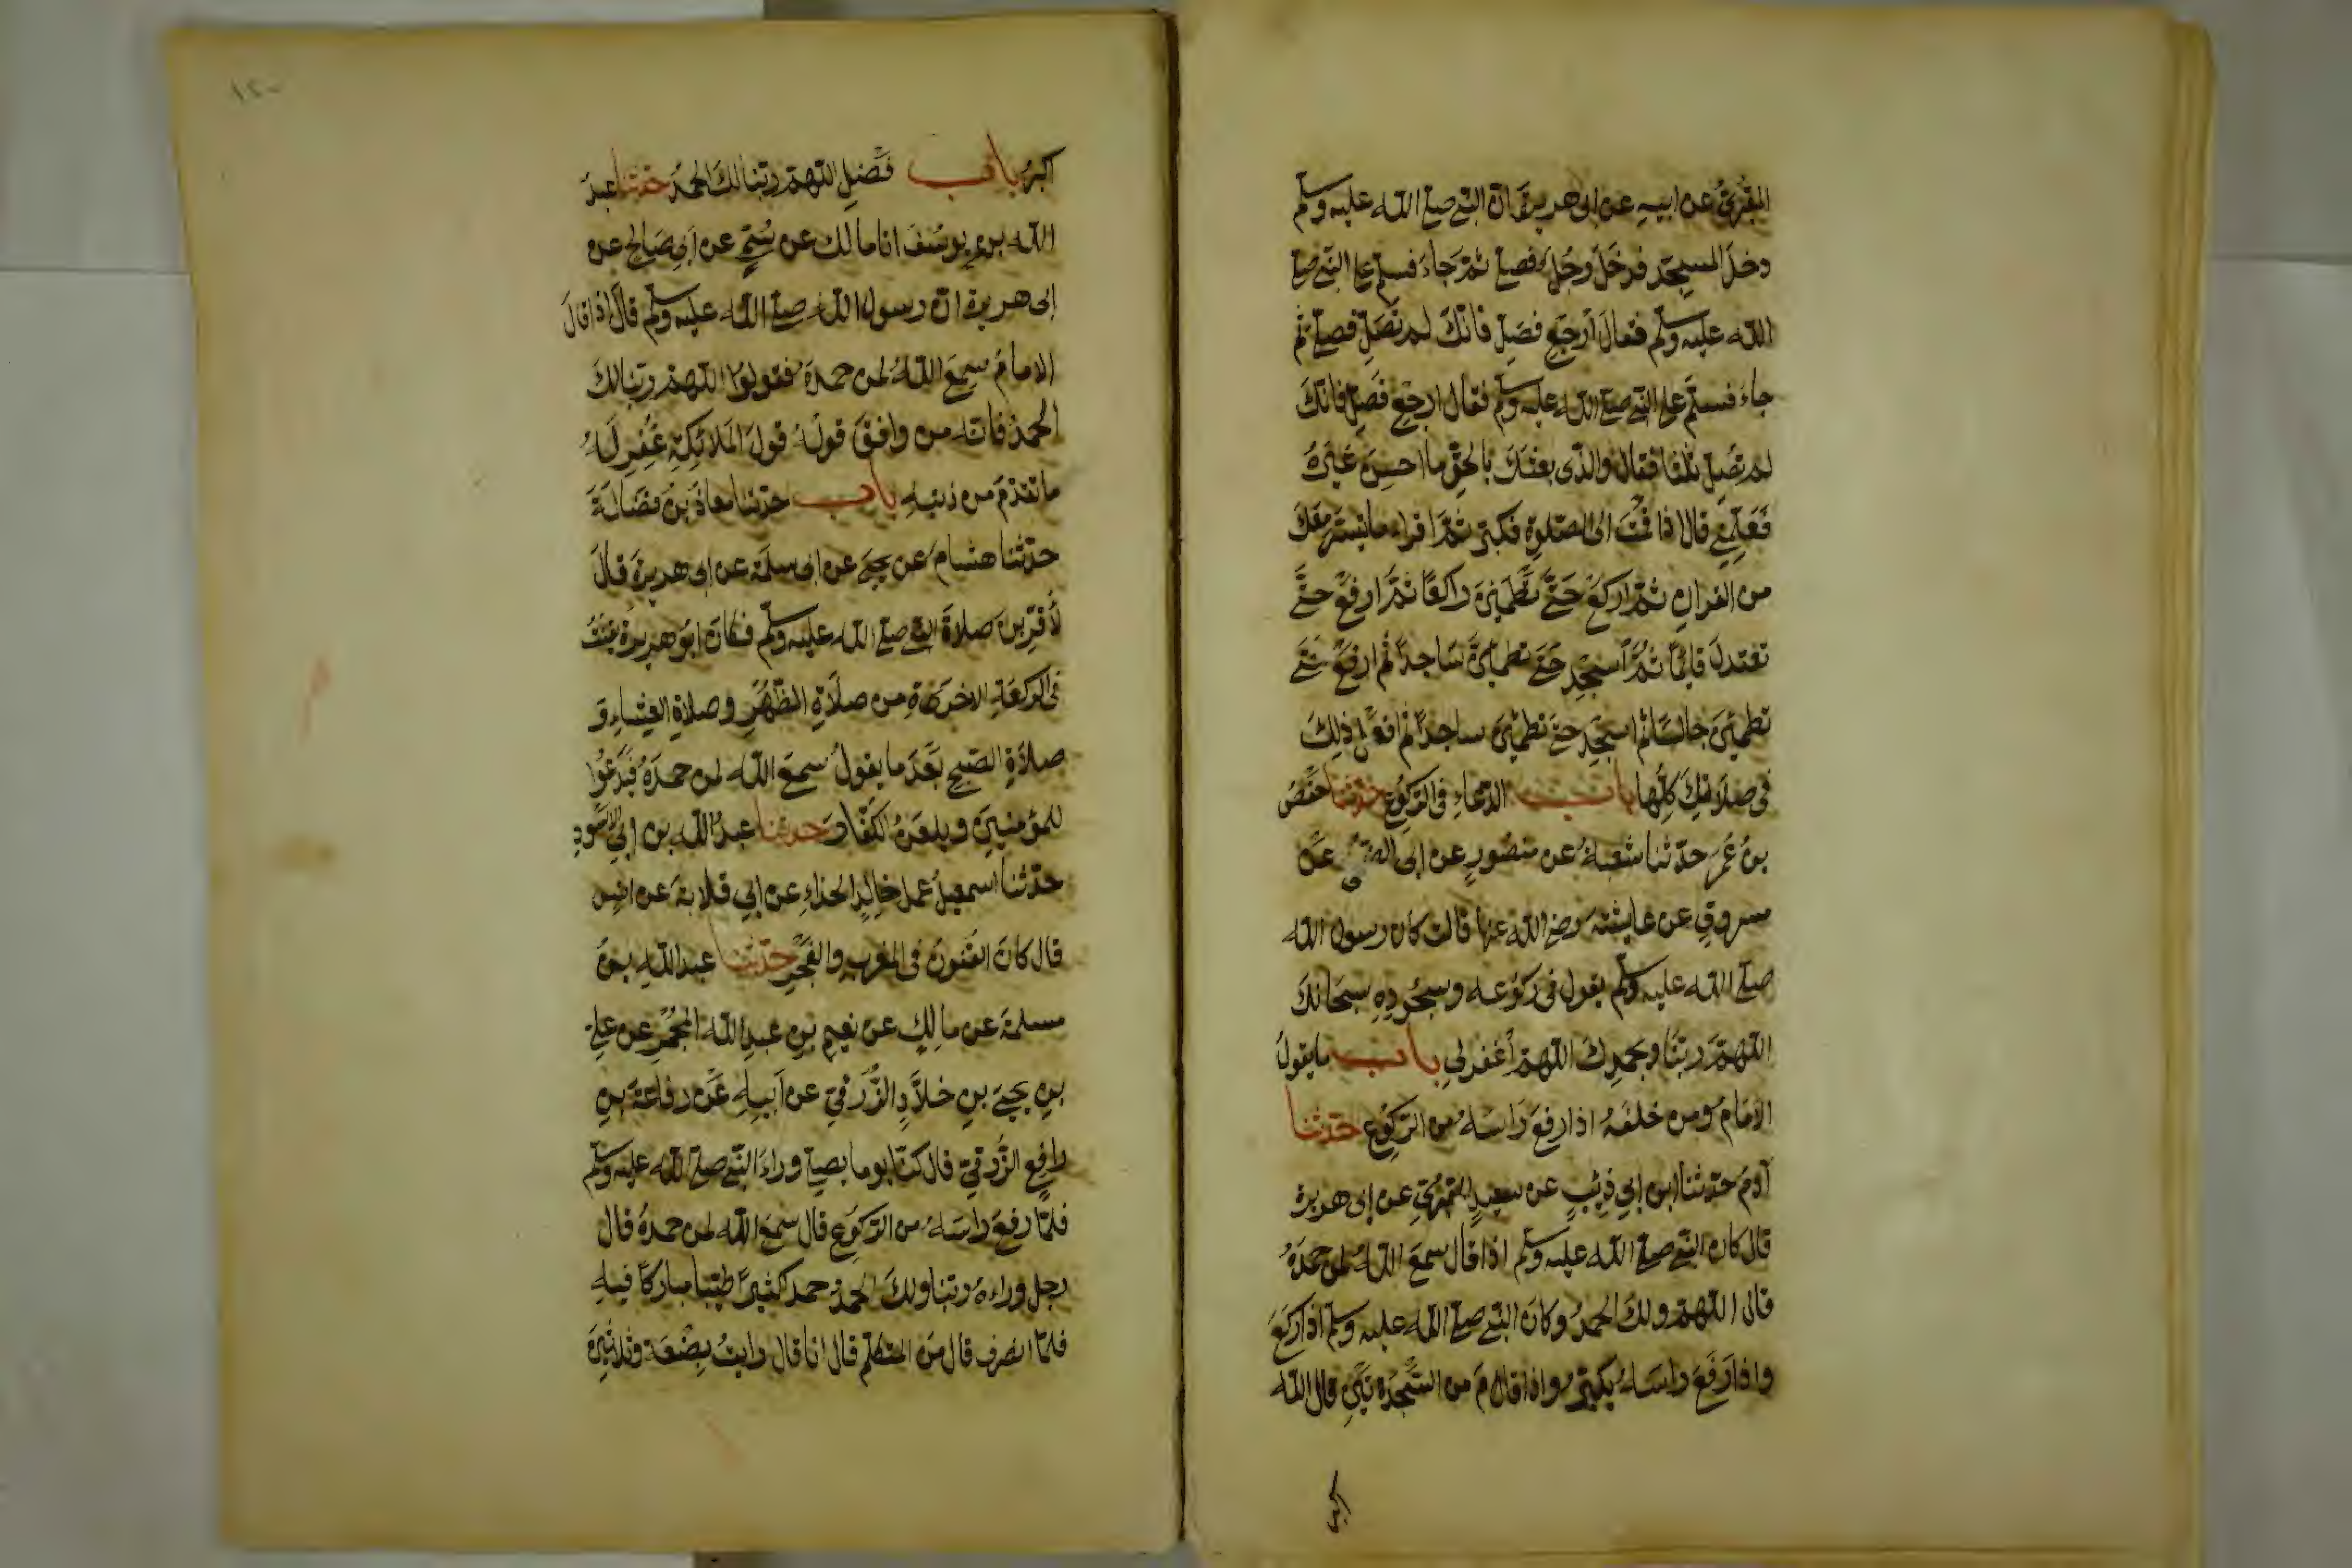 المقبري عن ابيه عن ابى هريرة ان النبي صلى الله عليه وسلم
دخل المسجد فدخل رجل فصلى ثم جاء فسلم على النبي صلى
الله عليه وسلم فقال ارجع فصل فانك لم تصل فصلى ثم
جاء فسلم على النبي صلى الله عليه وسلم فقال ارجع فصل فانك
لم تصل ثلثا فقال والذى بعثك بالحق ما احسن غيره
فعلمني قال اذا قمت الى الصلوة فكبر ثم اقراء ما تيسر معك
من القران ثم اركع حتى تطمئن راكعا ثم ارفع حتى
تعتدل قائما ثم اسجد حتى تطمئن ساجدا ثم ارفع حتى
تطمئن جالسا ثم اسجد حتى تطمئن ساجدا ثم افعل ذلك
فى صلاتك كلها باب الدعاء فى الركوع حدثنا حفص
بن عمر حدثنا شعبة عن منصور عن ابى الضحى عن
مسروق عن عايشة رضى الله عنها قالت كان رسول الله
صلى الله عليه وسلم يقول فى ركوعه وسجوده سبحانك
اللهم ربنا وبحمدك اللهم اغفر لي باب ما يقول
الامام ومن خلفه اذا رفع راسه من الركوع حدثنا
آدم حدثنا ابن ابي ذئب عن سعيد المقبري عن ابى هريرة
قال كان النبي صلى الله عليه وسلم اذا قال سمع الله لمن حمده
قال اللهم ولك الحمد وكان النبي صلى الله عليه وسلم اذا ركع
واذا رفع راسه يكبر واذا قام من السجدتين قال الله
اكبر
١٢٠
اكبر باب فضل اللهم ربنا لك الحمد حدثنا عبد
الله بن يوسف انا مالك عن سمي عن ابي صالح عن
ابى هريرة ان رسول الله صلى الله عليه وسلم قال اذا قال
الامام سمع الله لمن حمده فقولوا اللهم ربنا لك
الحمد فانه من وافق قوله قول الملائكة غفر له
ما تقدم من ذنبه باب حدثنا معاذ بن فضالة
حدثنا هشام عن يحيى عن ابى سلمة عن ابى هريرة قال
لأقربن صلاة النبي صلى الله عليه وسلم فكان ابو هريرة يقنت
فى الركعة الاخرة من صلاة الظهر وصلاة العشاء و
صلاة الصبح بعد ما يقول سمع الله لمن حمده فيدعوا
للمؤمنين ويلعن الكفار حدثنا عبد الله بن ابي الاسود
حدثنا اسمعيل عن خالد الحذاء عن ابي قلابة عن انس
قال كان القنوت فى المغرب والفجر حدثنا عبد الله بن
مسلمة عن مالك عن نعيم بن عبد الله المجمر عن علي
بن يحيى بن خلاد الزرقي عن ابيه عن رفاعة بن
رافع الزرقي قال كنا يوما نصلي وراء النبي صلى الله عليه وسلم
فلما رفع راسه من الركوع قال سمع الله لمن حمده قال
رجل وراءه ربنا ولك الحمد حمد كثيرا طيبا مباركا فيه
فلما انصرف قال من المتكلم قال انا قال رايت بضعة وثلاثين